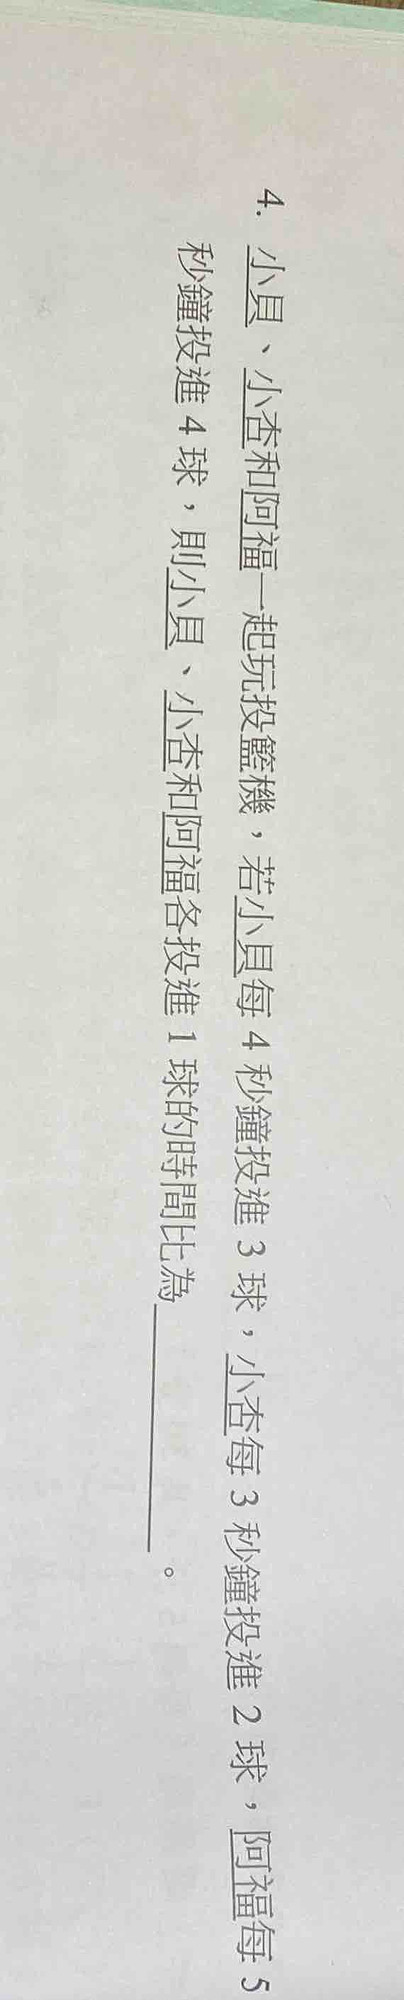 4. 小貝、小杏和阿福一起玩投籃機，若小貝每 4 秒鐘投進 3 球，小杏每 3 秒鐘投進 2 球，阿福每 5
秒鐘投進 4 球，則小貝、小杏和阿福各投進 1 球的時間比為__________。